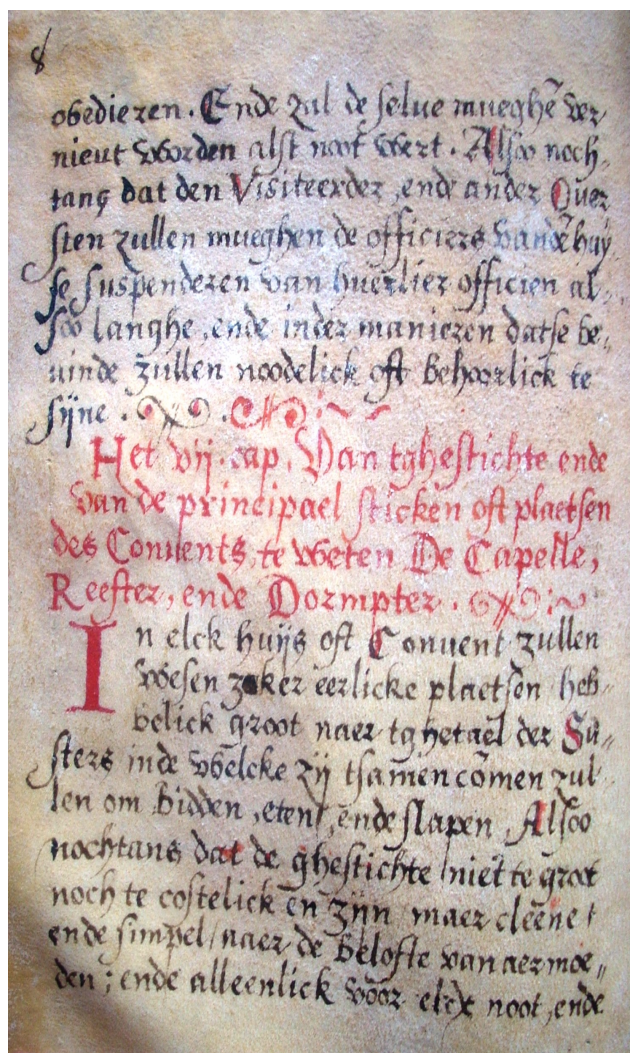 8
obedieren. Ende zal de selue mueghē ver-
nieut worden alst noot wert. Alsoo noch-
tans dat den Visiteerder, ende ander Ouer
sten zullen mueghen de officiers vandē huy
se suspenderen van huerlier officien al-
soo langhe, ende inder manieren datse be-
uinde zullen noodelick oft behoorlick te
sijne.
Het vij. cap. Van tghestichte ende
van de principael sticken oft plaetsen
des Conuents, te weten De Capelle,
Reefter, ende Dormpter.
In elck huijs oft Conuent zullen
wesen zeker eerlicke plaetsen heb-
belick groot naer tghetael der Su-
sters inde welcke zij tsamen comen zul-
len om bidden, eten, ende slapen, Alsoo
nochtans dat de ghestichte niet te groot
noch te costelick en zijn, maer cleene
ende simpel, naer de belofte van aermoe-
den; ende alleenlick voor elcx noot, ende